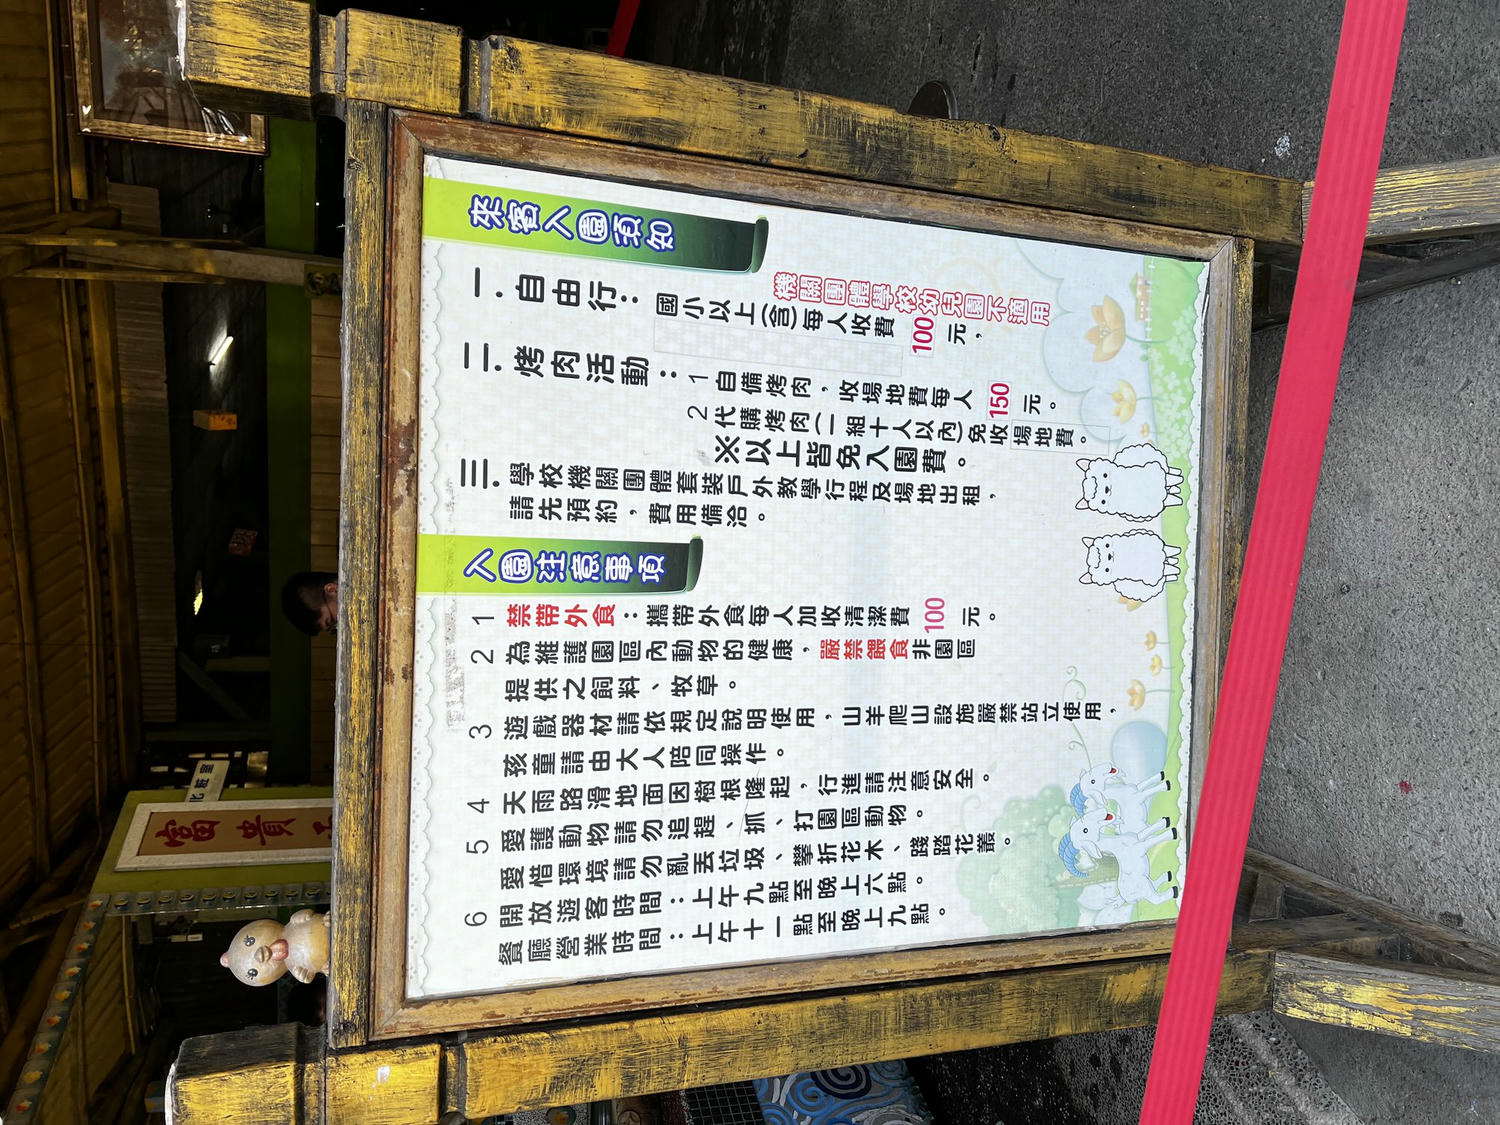 來賓入園須知
機關團體學校幼兒園不適用
一.自由行：國小以上(含)每人收費 100 元，
二.烤肉活動：
1 自備烤肉，收場地費每人 150 元。
2 代購烤肉(一組十人以內)免收場地費。
※以上皆免入園費。
三.學校機關團體套裝戶外教學行程及場地出租，
請先預約，費用備洽。
入園注意事項
1 禁帶外食：攜帶外食每人加收清潔費 100 元。
2 為維護園區內動物的健康，嚴禁餵食非園區
提供之飼料、牧草。
3 遊戲器材請依規定說明使用，山羊爬山設施嚴禁站立使用，
孩童請由大人陪同操作。
4 天雨路滑地面因樹根隆起，行進請注意安全。
5 愛護動物請勿追趕、抓、打園區動物。
愛惜環境請勿亂丟垃圾、攀折花木、踐踏花叢。
6 開放遊客時間：上午九點至晚上六點。
餐廳營業時間：上午十一點至晚上九點。
富貴
化粧室